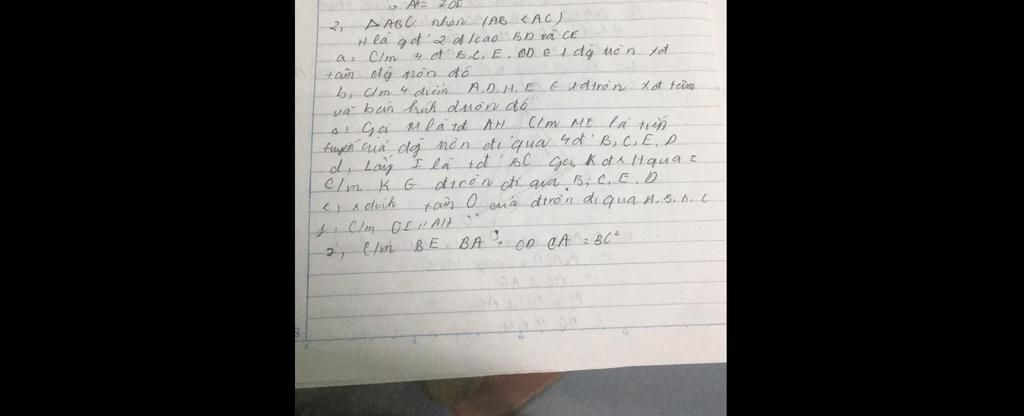 AH = 2OI
2, △ABC nhọn (AB < AC)
H là gđ' 2 đ/cao BD và CE
a, C/m 4 đ' B, C, E, D ∈ 1 đg tròn xđ
tâm đg tròn đó
b, C/m 4 điểm A, D, H, E ∈ 1 đtròn xđ tâm
và bán kính đó
c, Gọi M là tđ AH. C/m ME là tiếp
tuyến của đg tròn đi qua 4 đ' B, C, E, D
d, Lấy I là tđ BC Gọi K đx H qua I
C/m K ∈ đtròn đi qua B, C, E, D
e, tâm O của đtròn đi qua A, B, K, C
f, C/m OI // AH
2, C/m BE. BA + CD CA = BC²